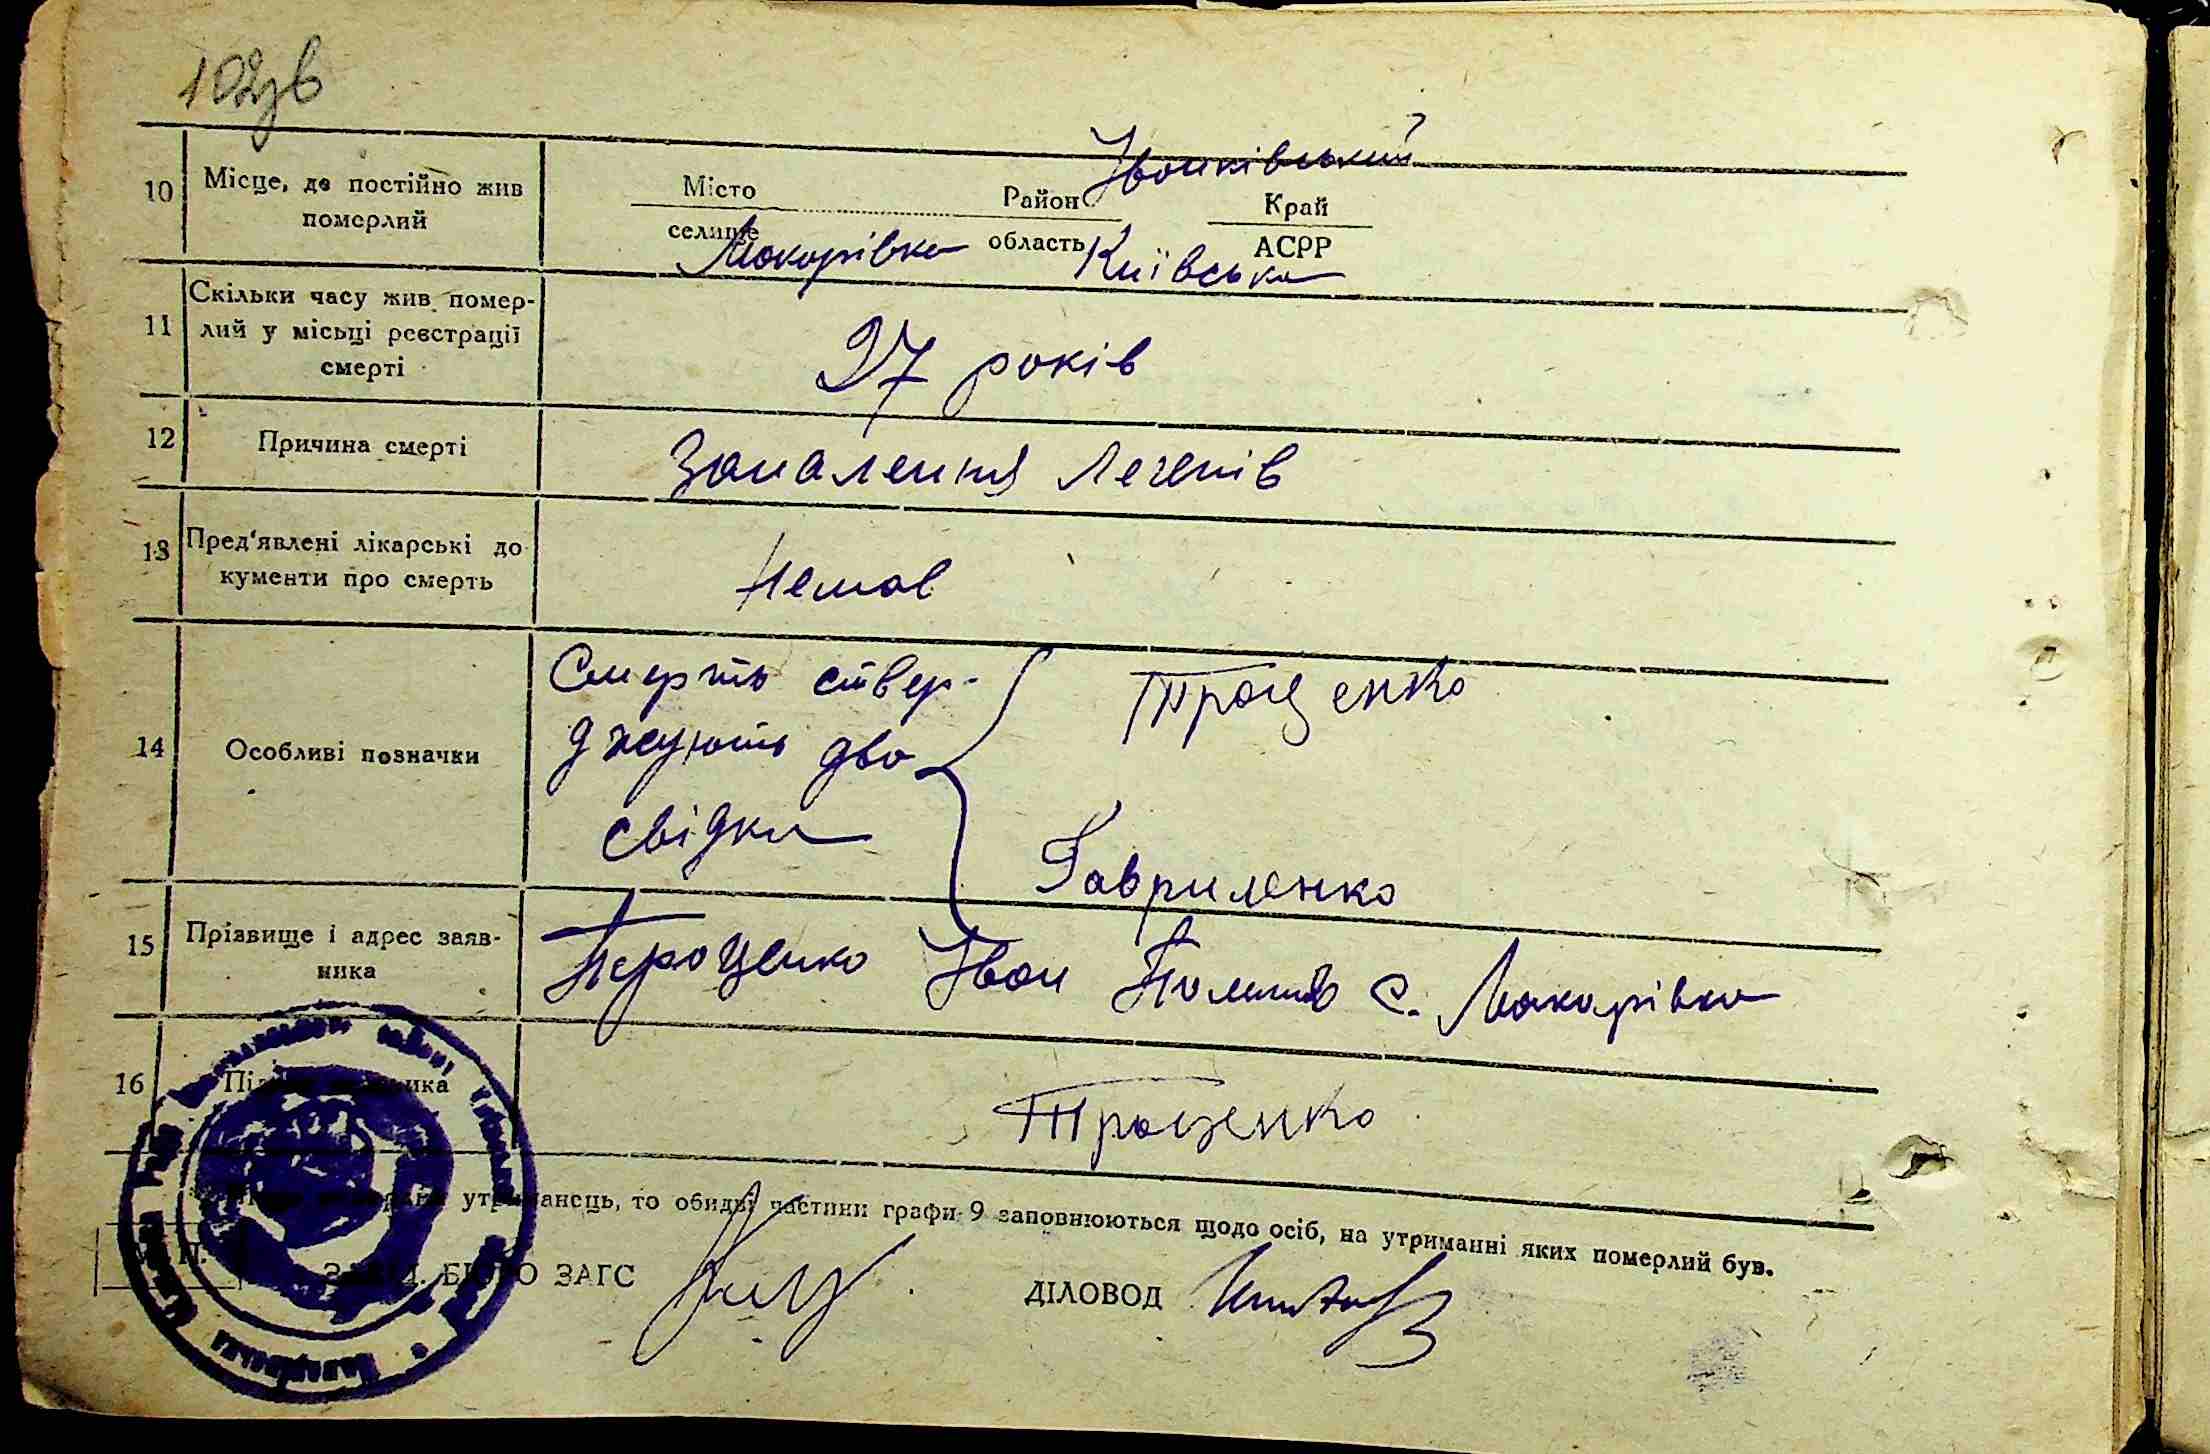 102зв
10 Місце, де постійно жив померлий
Місто селище Макарівка
Район Іванківський
область Київська
Край АСРР
11 Скільки часу жив помер-
лий у місьці реєстрації
смерті
27 років
12 Причина смерті
Запалення Легенів
13 Пред'явлені лікарські до
кументи про смерть
Немає
14 Особливі позначки
Смерть ствер-
джують два
свідки
Троценко
Гавриленко
15 Прізвище і адрес заяв-
ника
Троценко Іван с. Макарівка
16
Троценко
утриманець, то обидві частини графи 9 заповнюються щодо осіб, на утриманні яких померлий був.
ЗАВІД. БЮРО ЗАГС
ДІЛОВОД